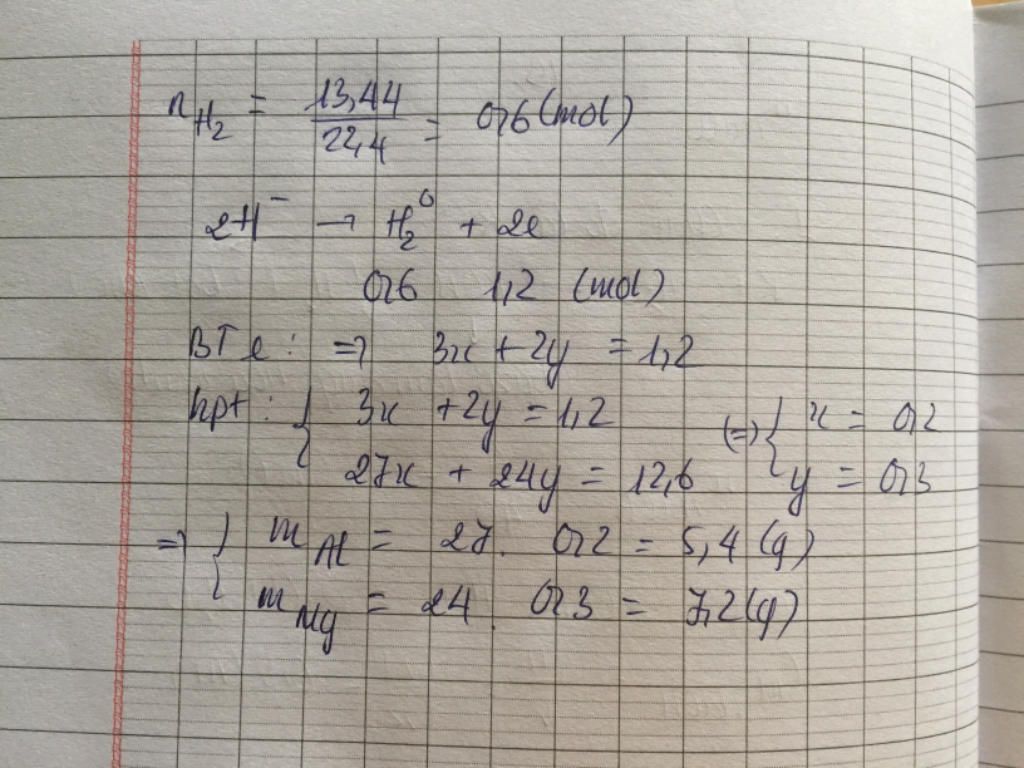 n_H₂ = 13,44/22,4 = 0,6 (mol)
2H⁻ → H₂⁰ + 2e
0,6 1,2 (mol)
BTe: => 3x + 2y = 1,2
hpt: { 3x + 2y = 1,2 (=) { x = 0,2
27x + 24y = 12,6 y = 0,3
=> { m_Al = 27. 0,2 = 5,4 (g)
m_Mg = 24. 0,3 = 7,2 (g)